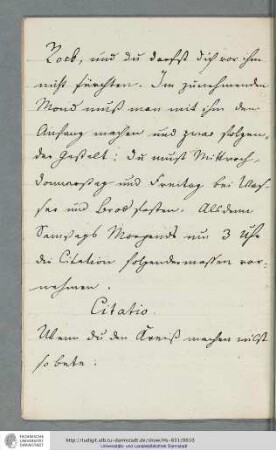 Rock, und du darfst dich vor ihm
nicht fürchten. Im zunehmenden
Mond muß man mit ihm den
Anfang machen und zwar folgen-
der Gestalt: du must Mittwoch,
donnerstag und Freitag bei Was-
ser und Brod fasten. Alsdann
Samstags Morgends um 3 Uhr
die Citation folgendermassen vor-
nehmen.
Citatio.
Wenn du den Kreiß machen willst
so bete:
TECHNISCHE
UNIVERSITÄT
DARMSTADT
http://tudigit.ulb.tu-darmstadt.de/show/Hs-831/0010
Universitäts- und Landesbibliothek Darmstadt